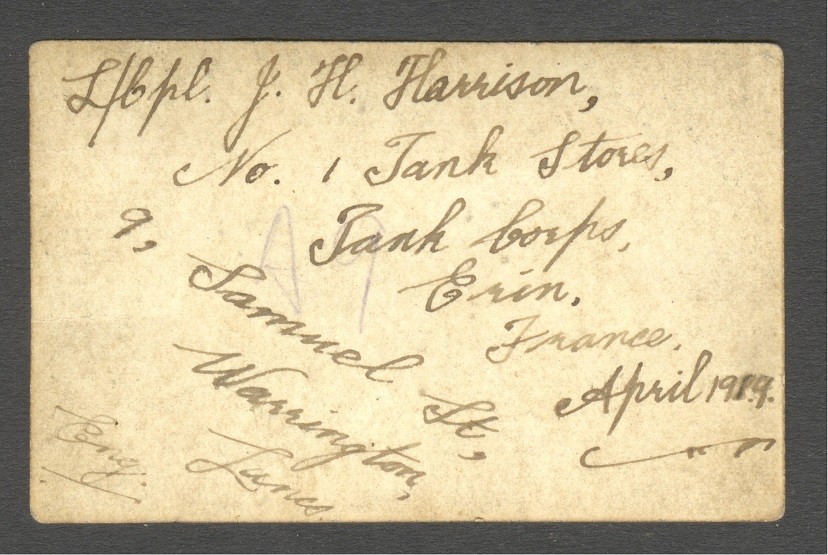 L/Cpl. J. H. Harrison,
No. 1 Tank Stores,
Tank Corps,
Erin,
France.
April 1919.
9,
Samuel St,
Warrington,
Lancs.
Eng.
A9